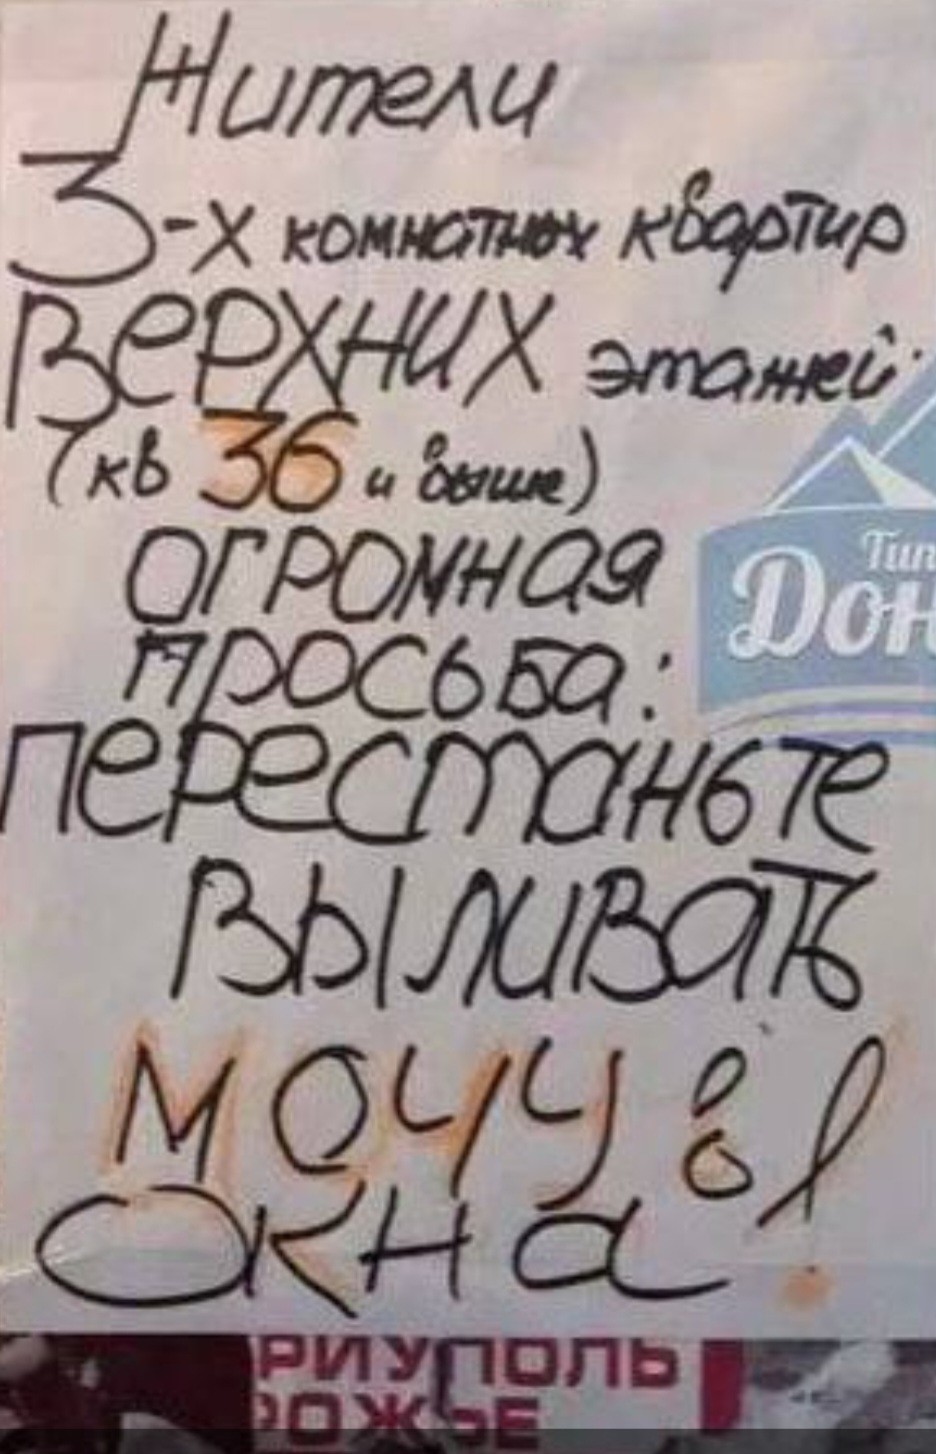 Жители
3-х комнатных квартир
Верхних этажей
(кв 36 и выше)
огромная
просьба:
перестаньте
выливать
мочу в
окна!
Тип
Дон
РИУПОЛЬ
ОЖЬЕ